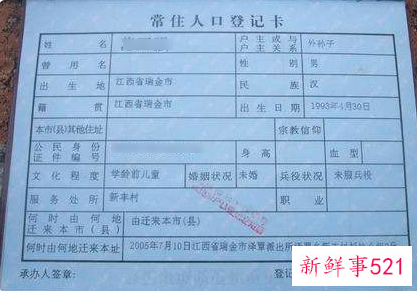 常住人口登记卡
姓 名 户主或与户主关系 外孙子
曾用名 性 别 男
出生地 江西省瑞金市 民 族 汉
籍 贯 江西省瑞金市 出生日期 1993年4月30日
本市(县)其他住址 宗教信仰
公民身份证件编号 身 高 血 型
文化程度 学龄前儿童 婚姻状况 未婚 兵役状况 未服兵役
服务处所 新丰村 职 业
何时由何地迁来本市(县) 由迁来本市(县)
何时由何地迁来本址 2005年7月10日江西省瑞金市泽覃派出所
承办人签章: 登记
新鲜事521